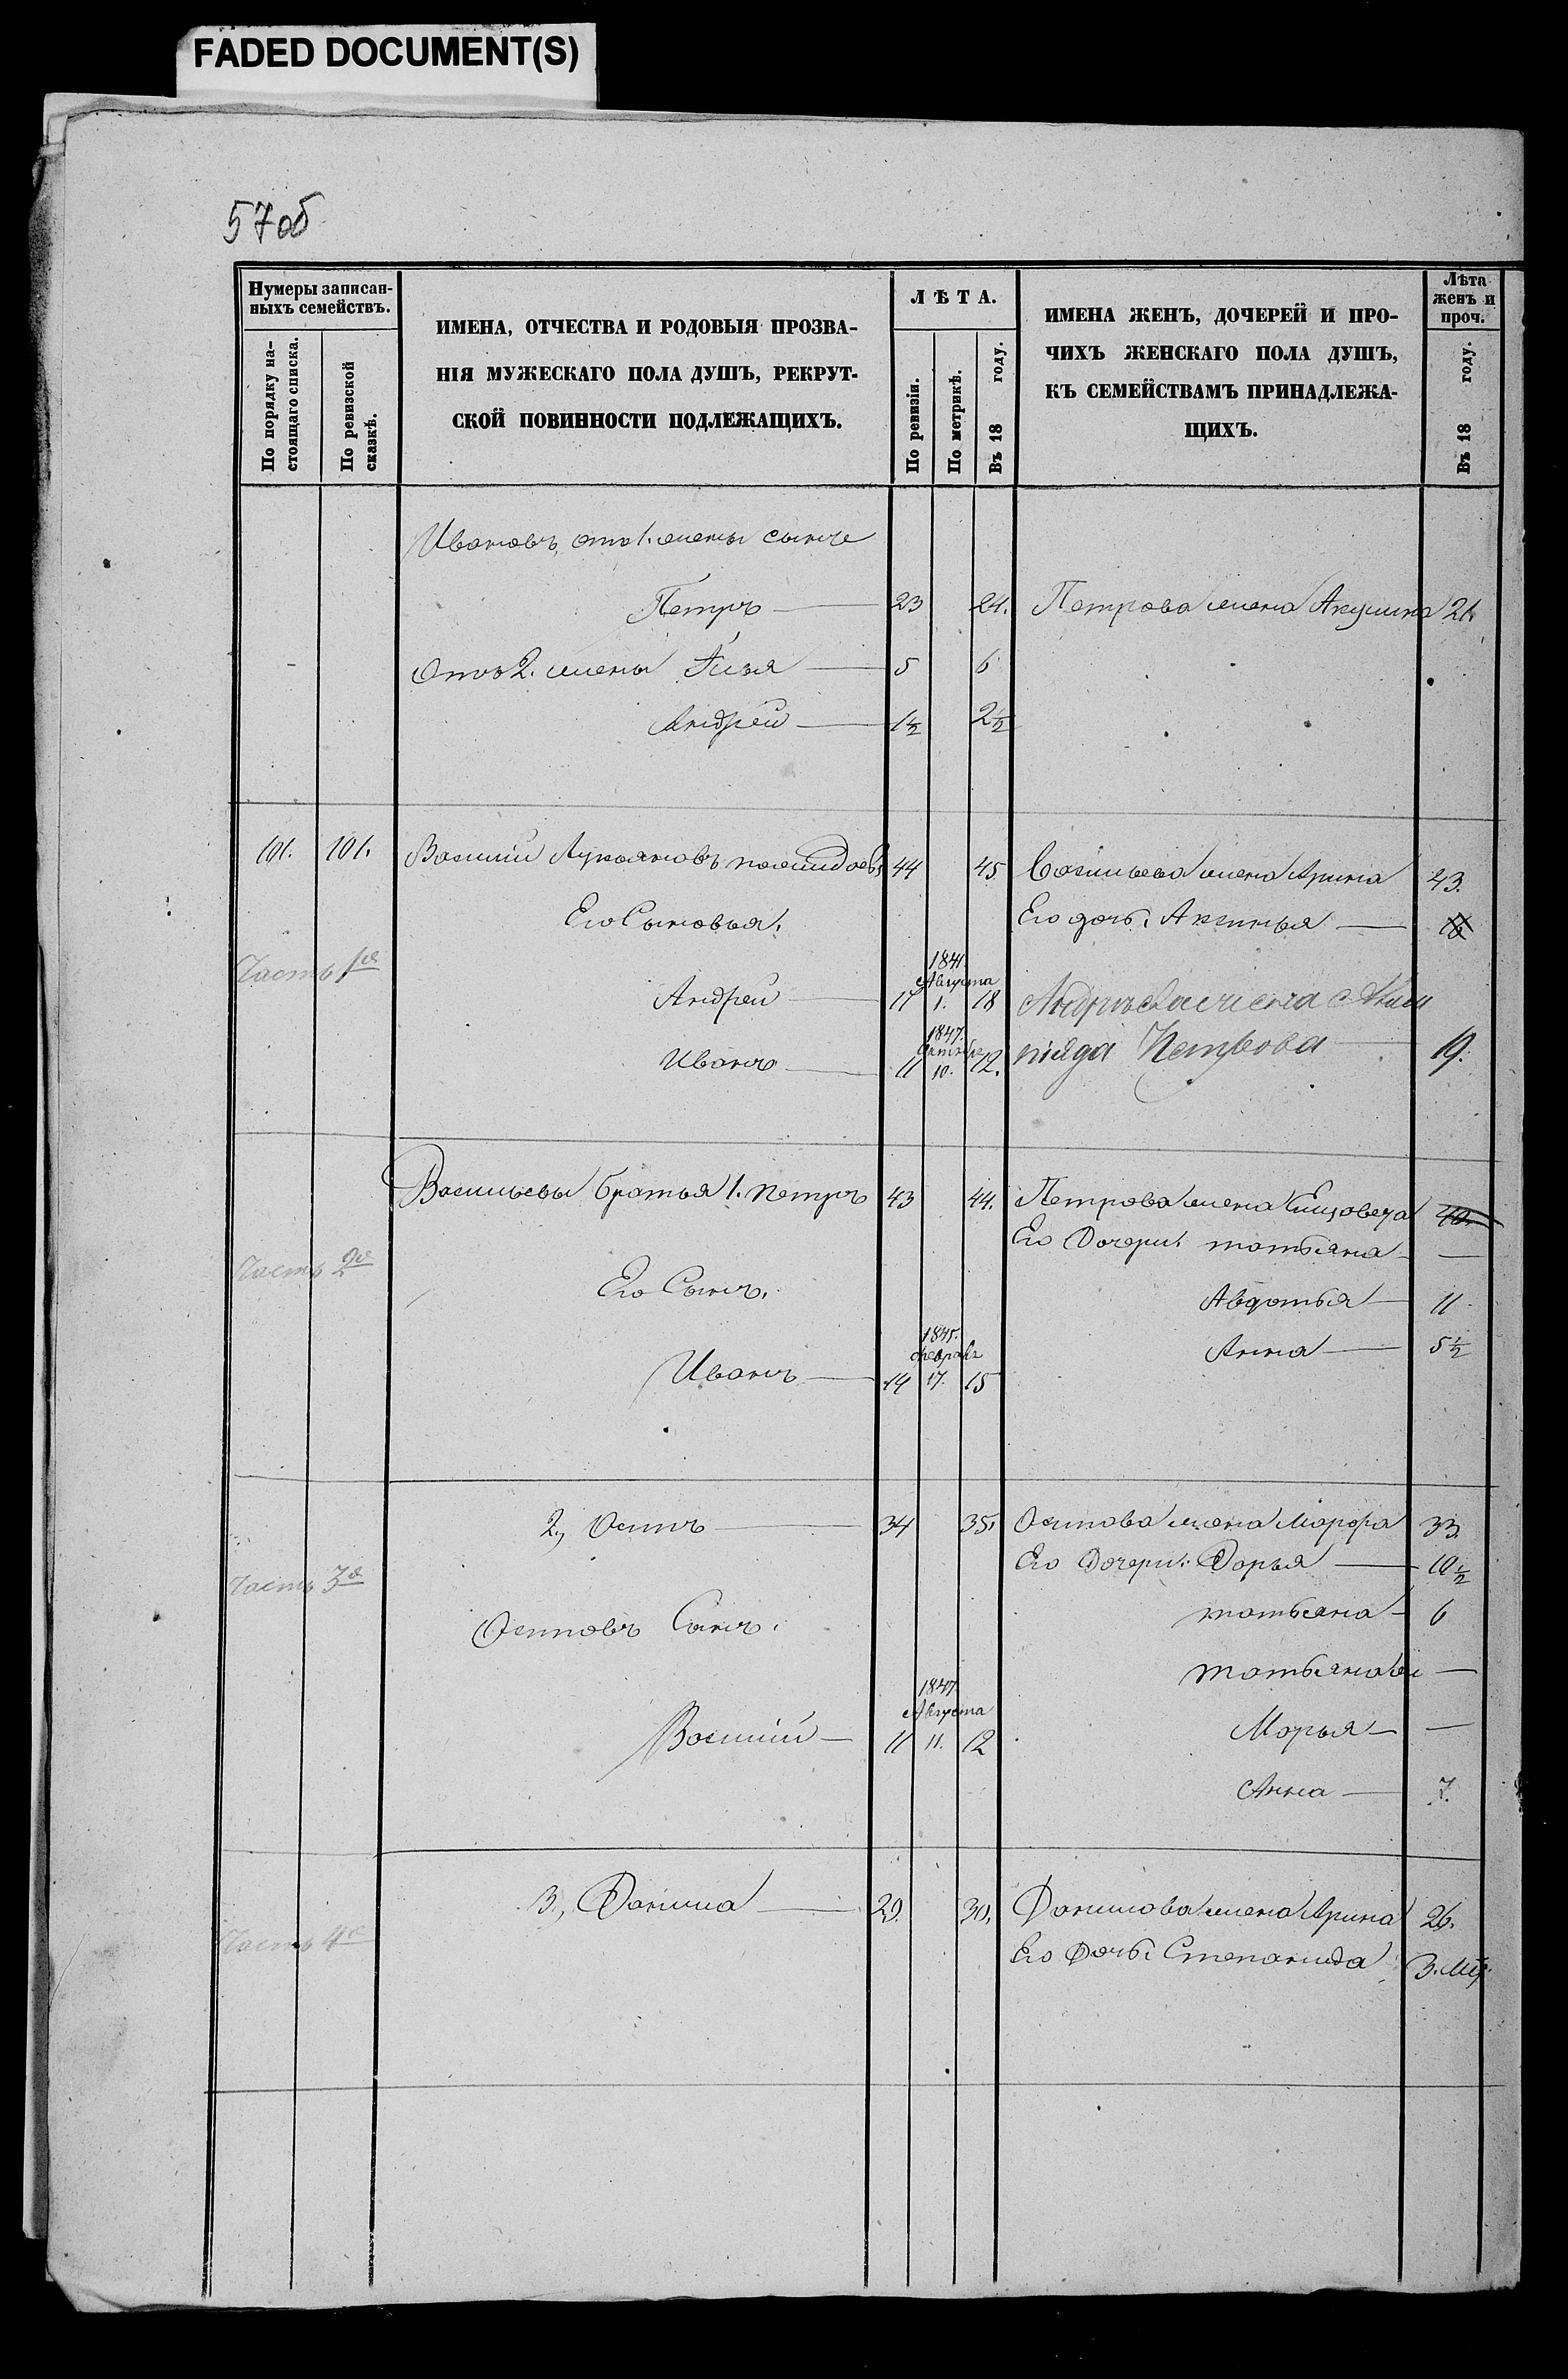 FADED DOCUMENT(S)
57об
Нумеры записан-
ныхъ семействъ.
По порядку на-
стоящаго списка.
По ревизской
сказкѣ.
ИМЕНА, ОТЧЕСТВА И РОДОВЫЯ ПРОЗВА-
НІЯ МУЖЕСКАГО ПОЛА ДУШЪ, РЕКРУТ-
СКОЙ ПОВИННОСТИ ПОДЛЕЖАЩИХЪ.
ЛѢТА.
По ревизіи.
По метрикѣ.
Въ 18 году.
ИМЕНА ЖЕНЪ, ДОЧЕРЕЙ И ПРО-
ЧИХЪ ЖЕНСКАГО ПОЛА ДУШЪ,
КЪ СЕМЕЙСТВАМЪ ПРИНАДЛЕЖА-
ЩИХЪ.
Лѣта
женъ и
проч.
Въ 18 году.
Ивановъ, отъ 1. жены сынъ
Петръ 23 24. Петрова жена Акулина 21.
Отъ 2. жены Илья 5 6
Андрей 1½ 2½
101. 101. Василій Лукояновъ 44 45 Васильева жена Арина 43.
Его Сыновья. Его дочь: Аксинья
Часть 1я
1841
Августа
Андрей 17 1. 18 Андрѣева жена Олим
1847.
Октября
Иванъ 11 10. 12. піяда Петрова 19.
Васильевы братья 1. Петръ 43 44. Петрова жена Елизовета 40.
Его Дочери: татьяна —
Часть 2я
Его Сынъ. Авдотья 11
1845.
февраля
Анна 5½
Иванъ 14 17. 15
2., Осипъ 34 35. Осипова жена Марфа 33.
Его Дочери: Дарья 10½
Часть 3я
татьяна 6
Осиповъ Сынъ.
татьяна —
1847
Августа
Василій 11 11. 12 Марья —
Анна 7.
3., Данила 29. 30. Данилова жена Арина 26.
Часть 4я
Его Дочь: Степанида 3. мѣ.